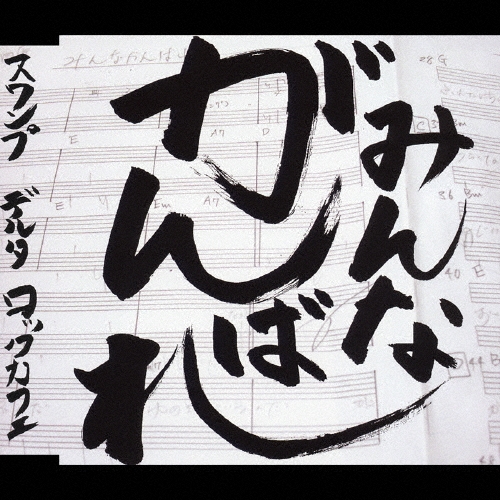 みんな
がんばれ
スワンプ デルタ ロックカフェ
みんながんばれ
28 G
E
A7
D
E
Em
A7
36 Bm
40 E
44 B